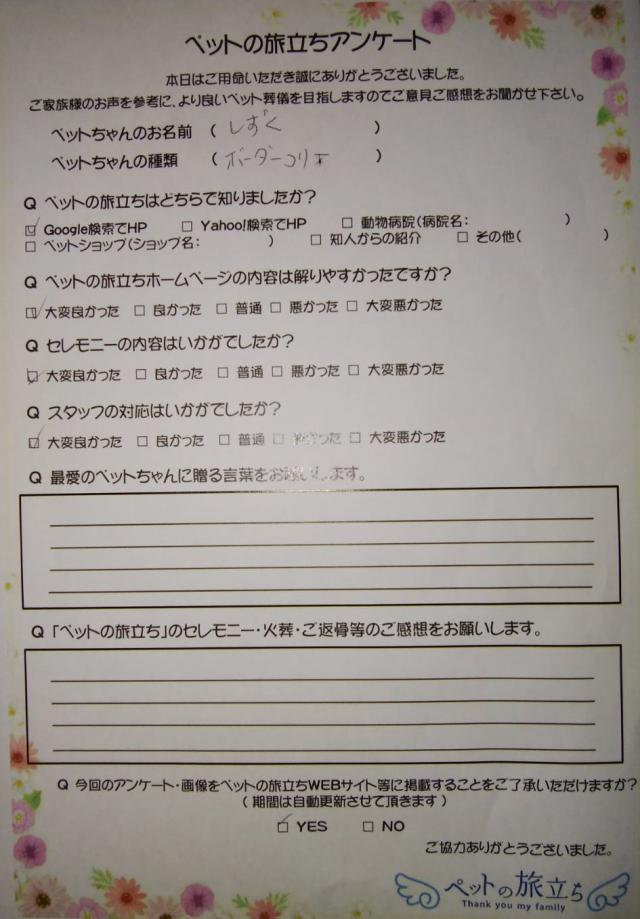 ペットの旅立ちアンケート
本日はご用命いただき誠にありがとうございました。
ご家族様のお声を参考に、より良いペット葬儀を目指しますのでご意見ご感想をお聞かせ下さい。
ペットちゃんのお名前 ( しずく )
ペットちゃんの種類 ( ボーダーコリー )
Q ペットの旅立ちはどちらで知りましたか?
☑ Google検索でHP □ Yahoo!検索でHP □ 動物病院(病院名: )
□ ペットショップ(ショップ名: ) □ 知人からの紹介 □ その他( )
Q ペットの旅立ちホームページの内容は解りやすかったですか?
☑ 大変良かった □ 良かった □ 普通 □ 悪かった □ 大変悪かった
Q セレモニーの内容はいかがでしたか?
☑ 大変良かった □ 良かった □ 普通 □ 悪かった □ 大変悪かった
Q スタッフの対応はいかがでしたか?
☑ 大変良かった □ 良かった □ 普通 □ 悪かった □ 大変悪かった
Q 最愛のペットちゃんに贈る言葉をお願いします。
Q 「ペットの旅立ち」のセレモニー・火葬・ご返骨等のご感想をお願いします。
Q 今回のアンケート・画像をペットの旅立ちWEBサイト等に掲載することをご了承いただけますか?
( 期間は自動更新させて頂きます )
☑ YES □ NO
ご協力ありがとうございました。
ペットの旅立ち
Thank you my family